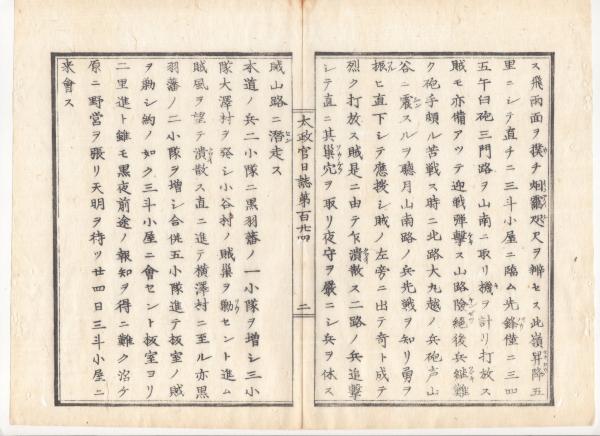 ス飛雨面ヲ撲チ烟霧咫尺ヲ辨セス此嶺昇降五
里ニシテ直チニ三斗小屋ニ臨ム先鋒僅ニ三四
五午臼砲三門路ヲ山南ニ取リ機ヲ計リ打放ス
賊モ亦備アツテ迎戦弾撃ス山路險絕後兵継難
ク砲手頗ル苦戦ス時ニ北路大九越ノ兵砲声山
谷ニ震スルヲ聴月山南路ノ兵光戦ヲ知リ勇ヲ
振ヒ直下シテ應援シ賊ノ左旁ニ出テ奇ト成テ
烈ク打放ス賊是ニ由テ乍潰散ス二路ノ兵追撃
シテ直ニ其巢穴ヲ取リ夜守ヲ嚴ニシ兵ヲ休ス
太政官日誌第百廿四
二
賊山路ニ潜走ス
本道ノ兵二小隊ニ黒羽藩ノ一小隊ヲ増シ三小
隊大澤村ヲ発シ小谷村ノ賊巢ヲ勦セント進ム
賊風ヲ望テ潰散ス直ニ進テ横澤村ニ至ル亦黒
羽藩ノ二小隊ヲ増シ合併五小隊進テ板室ノ賊
ヲ勦シ約ノ如ク三斗小屋ニ會セント板室ヨリ
二里進ト雖モ黒夜前途ノ報知ヲ得ニ難ク沼ケ
原ニ野営ヲ張リ天明ヲ待ツ廿四日三斗小屋ニ
来會ス